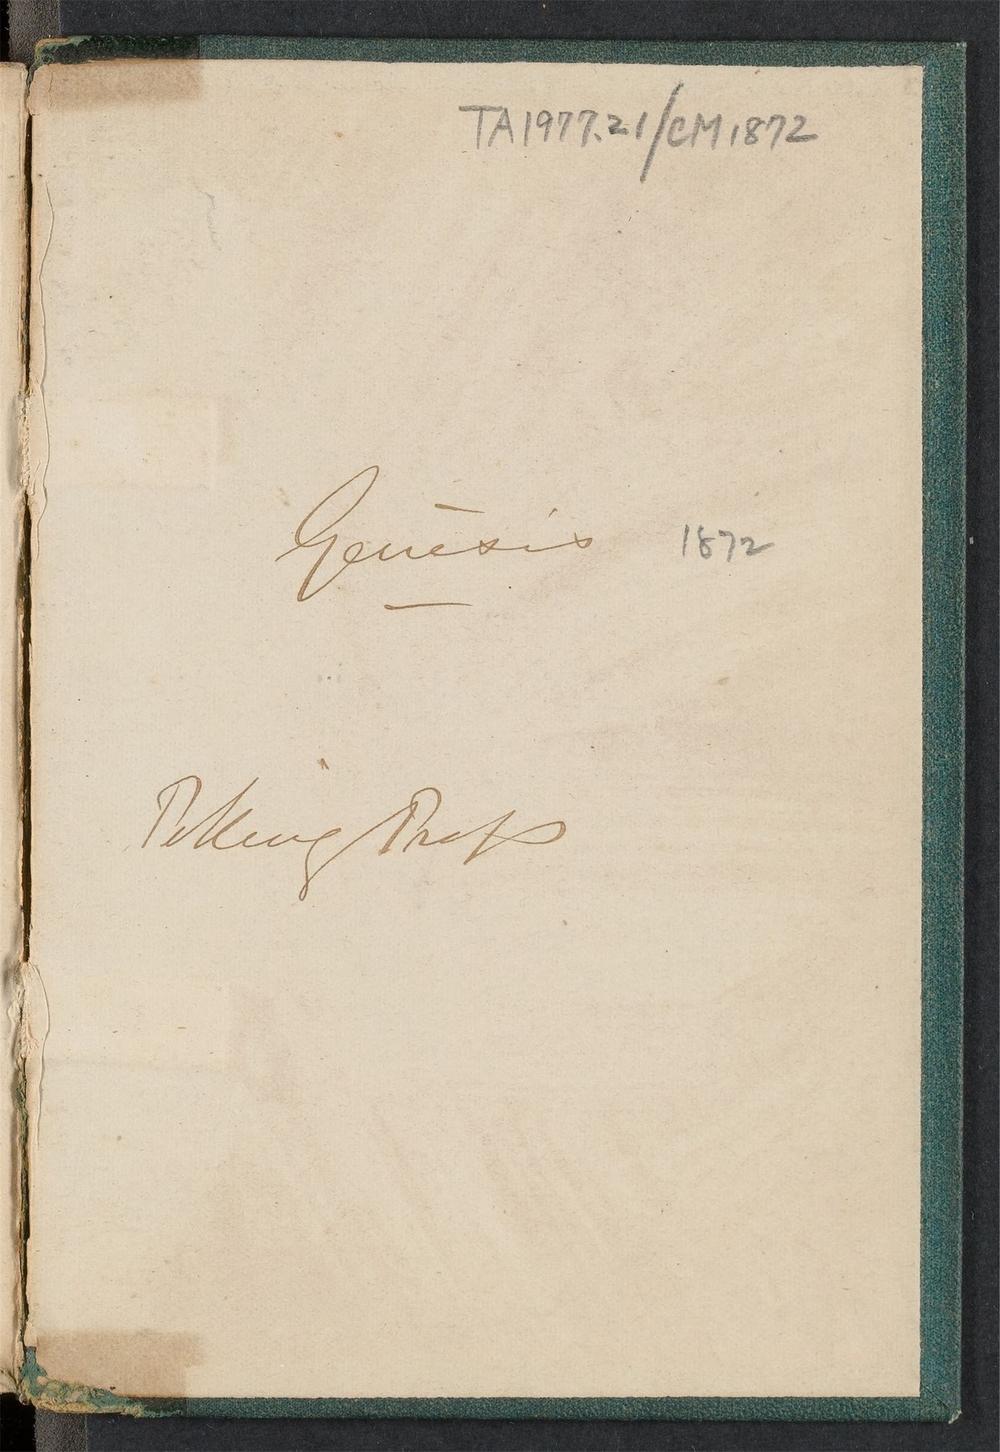 TA1977.21/CM1872
Genesis 1872
Peking Profs